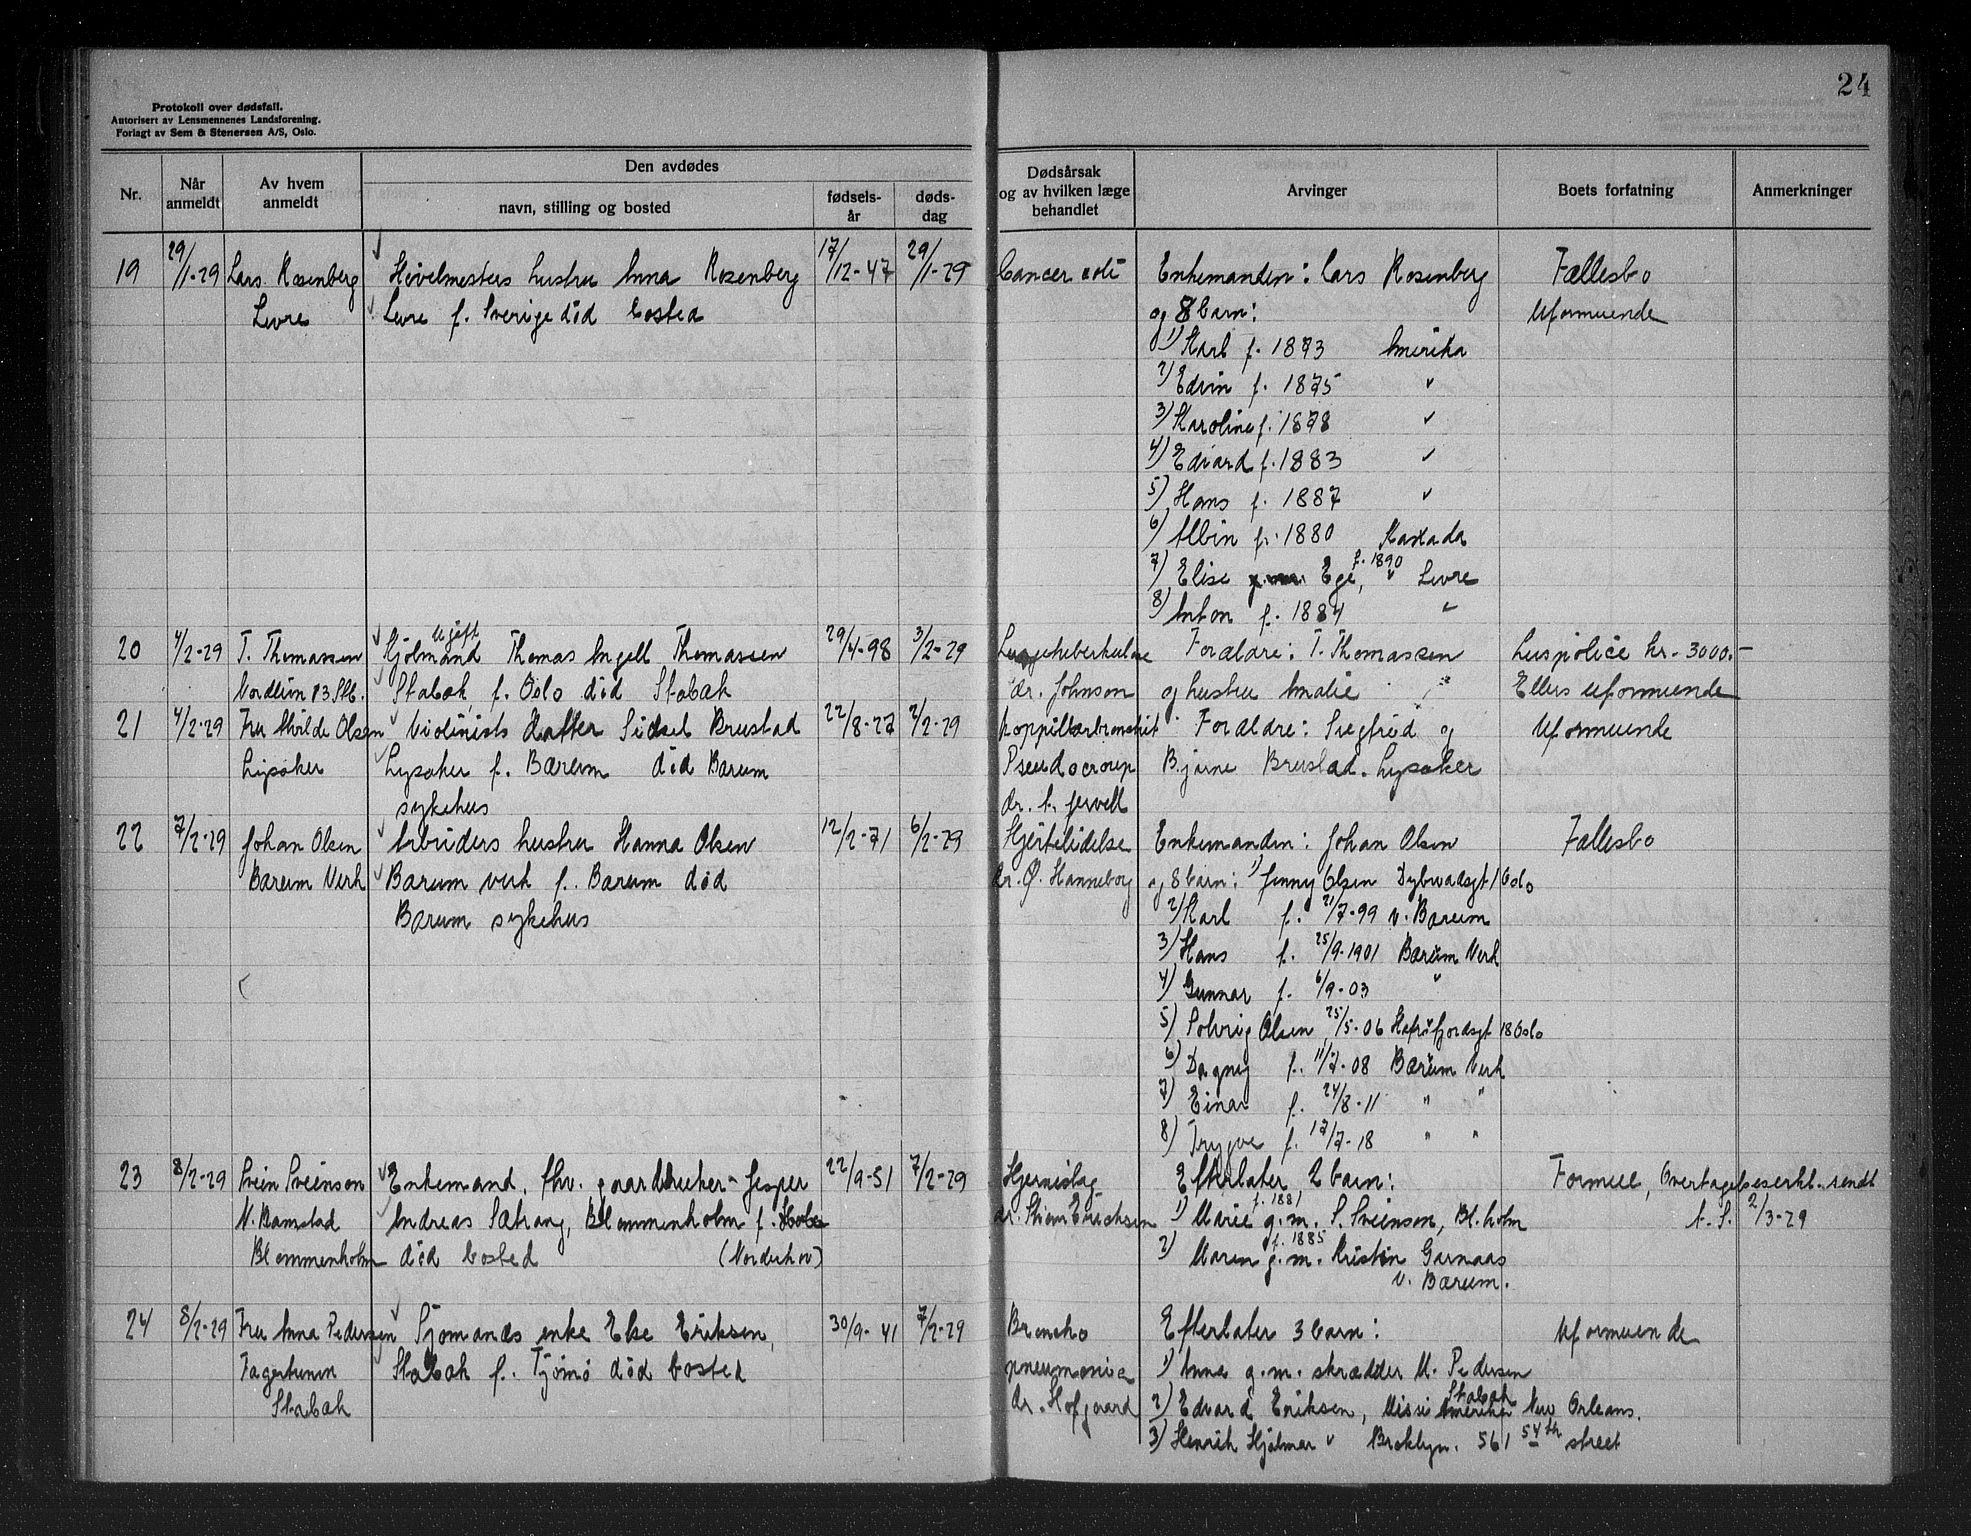 24
Protokoll over dødsfall.
Autorisert av Lensmennenes Landsforening.
Forlagt av Sem & Stenersen A/S, Oslo.
Nr.
Når anmeldt
Av hvem anmeldt
Den avdødes
navn, stilling og bosted
fødsels-år
døds-dag
Dødsårsak og av hvilken læge behandlet
Arvinger
Boets forfatning
Anmerkninger
19 29/1-29 Lars Rosenberg Høvelmesters hustru Anna Rosenberg 17/12-47 29/1-29 Cancer coli Enkemanden: Lars Rosenberg Fællesbo
Levre Levre f. Sverige død bosted og 8 barn: Uformuende
1) Karl f. 1873 Amerika
2) Edvin f. 1875 "
3) Karoline f. 1878 "
4) Edvard f. 1883 "
5) Hans f. 1887 "
6) Albin f. 1880 Kanada
7) Elise Ege, f. 1890 Levre
8) Anton f. 1884 "
20 4/2-29 T. Thomassen Ugift Thomas Ingell Thomassen 29/4-98 3/2-29 Lungetuberkulose Forældre: T. Thomassen Livspolice kr. 3000.-
Nordlien 13 Stb. Stabæk f. Oslo død Stabæk dr. Johnson og hustru Amalie " Ellers uformuende
21 4/2-29 Fru Alvilde Olsen Violinists datter Sidsel Brustad 22/8-27 2/2-29 Forældre: Siegfrid og Uformuende
Lysaker Lysaker f. Bærum død Bærum Pseudocroup Bjarne Brustad. Lysaker
sykehus dr. A. Jervell
22 7/2-29 Johan Olsen Arbeiders hustru Hanna Olsen 12/2-71 6/2-29 Hjertelidelse Enkemanden: Johan Olsen Fællesbo
Bærum Verk Bærum verk f. Bærum død dr. Ø. Hanneborg og 8 barn: 1) Jenny Olsen Dybwadsgt 1 Oslo
Bærum sykehus 2) Karl f. 21/7-99 v. Bærum
3) Hans f. 25/9-1901 Bærum Verk
4) Gunnar f. 6/9-03 "
5) Solveig Olsen, 25/5-06 Hafrsfjordsgt 18 Oslo
6) Dagny f. 11/7-08 Bærum Verk
7) Einar f. 24/8-11 " "
8) Trygve f. 17/7-18 " "
23 8/2-29 Svein Sveinson Enkemand, fhv. gaardbruker Jesper 22/9-51 7/2-29 Hjerneslag Efterlater 2 barn: Formue, Overtagelseserkl. sendt
V. Ramstad Andreas Sætrang, Blommenholm f. Hole dr. Thiem Ericksen 1) Marie f. 1881 g.m. S. Sveinson, Bl.holm A.S. 2/3-29
Blommenholm død bosted (Norderhov) 2) Maren f. 1885 g.m. Kristen Garnaas
v. Bærum.
24 8/2-29 Fru Anna Pedersen Sjømands enke Else Eriksen, 30/9-41 7/2-29 Broncho Efterlater 3 barn: Uformuende
Fagertunvn Stabæk f. Tjømø død bosted pneumonia 1) Anna g.m. skrædder M. Pedersen
Stabæk dr. Hofgaard Stabæk
2) Edvard Eriksen, Amerika New Orleans.
3) Henrik Hjalmar " Broklyn. 561 54th street